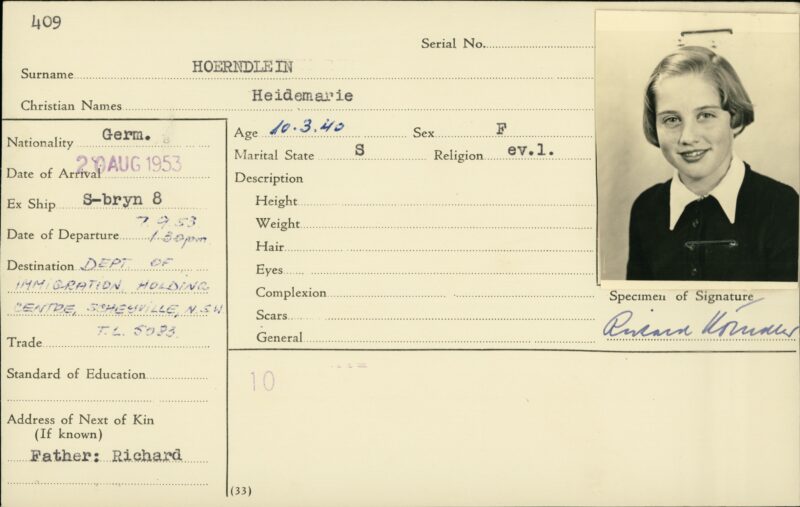 409
Serial No.
Surname HOERNDLEIN
Christian Names Heidemarie
Nationality Germ.
Date of Arrival 20 AUG 1953
Ex Ship S-bryn 8
Date of Departure 7.9.53
1.30pm
Destination DEPT OF
IMMIGRATION HOLDING
CENTRE, SCHEYVILLE, N.S.W
T.L. 5083
Trade
Standard of Education
Address of Next of Kin
(If known)
Father: Richard
Age 10.3.40 Sex F
Marital State S Religion ev.l.
Description
Height
Weight
Hair
Eyes
Complexion
Scars
General
Specimen of Signature
Richard
10
(33)